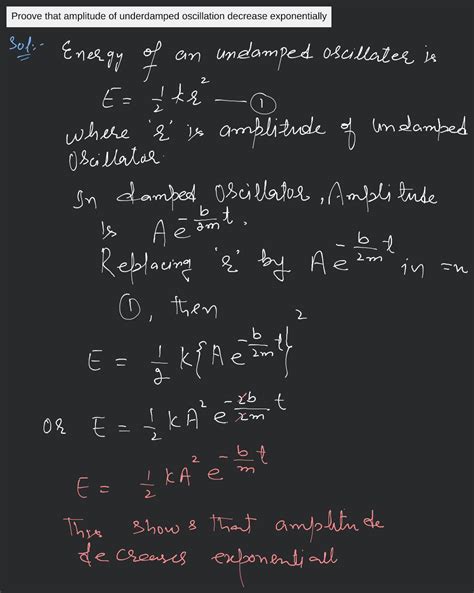 Proove that amplitude of underdamped oscillation decrease exponentially
Sol:- Energy of an undamped oscillater is
E = 1/2 kr² — ①
where 'r' is amplitude of undamped
Oscillator.
In damped Oscillator, Amplitude
is Ae^(-b/2m t).
Replacing 'r' by Ae^(-b/2m t) in =n
①, then
E = 1/2 K{Ae^(-b/2m t)}²
or E = 1/2 kA² e^(-2b/2m t)
E = 1/2 kA² e^(-b/m t)
This shows that amplitude
decreases exponentiall